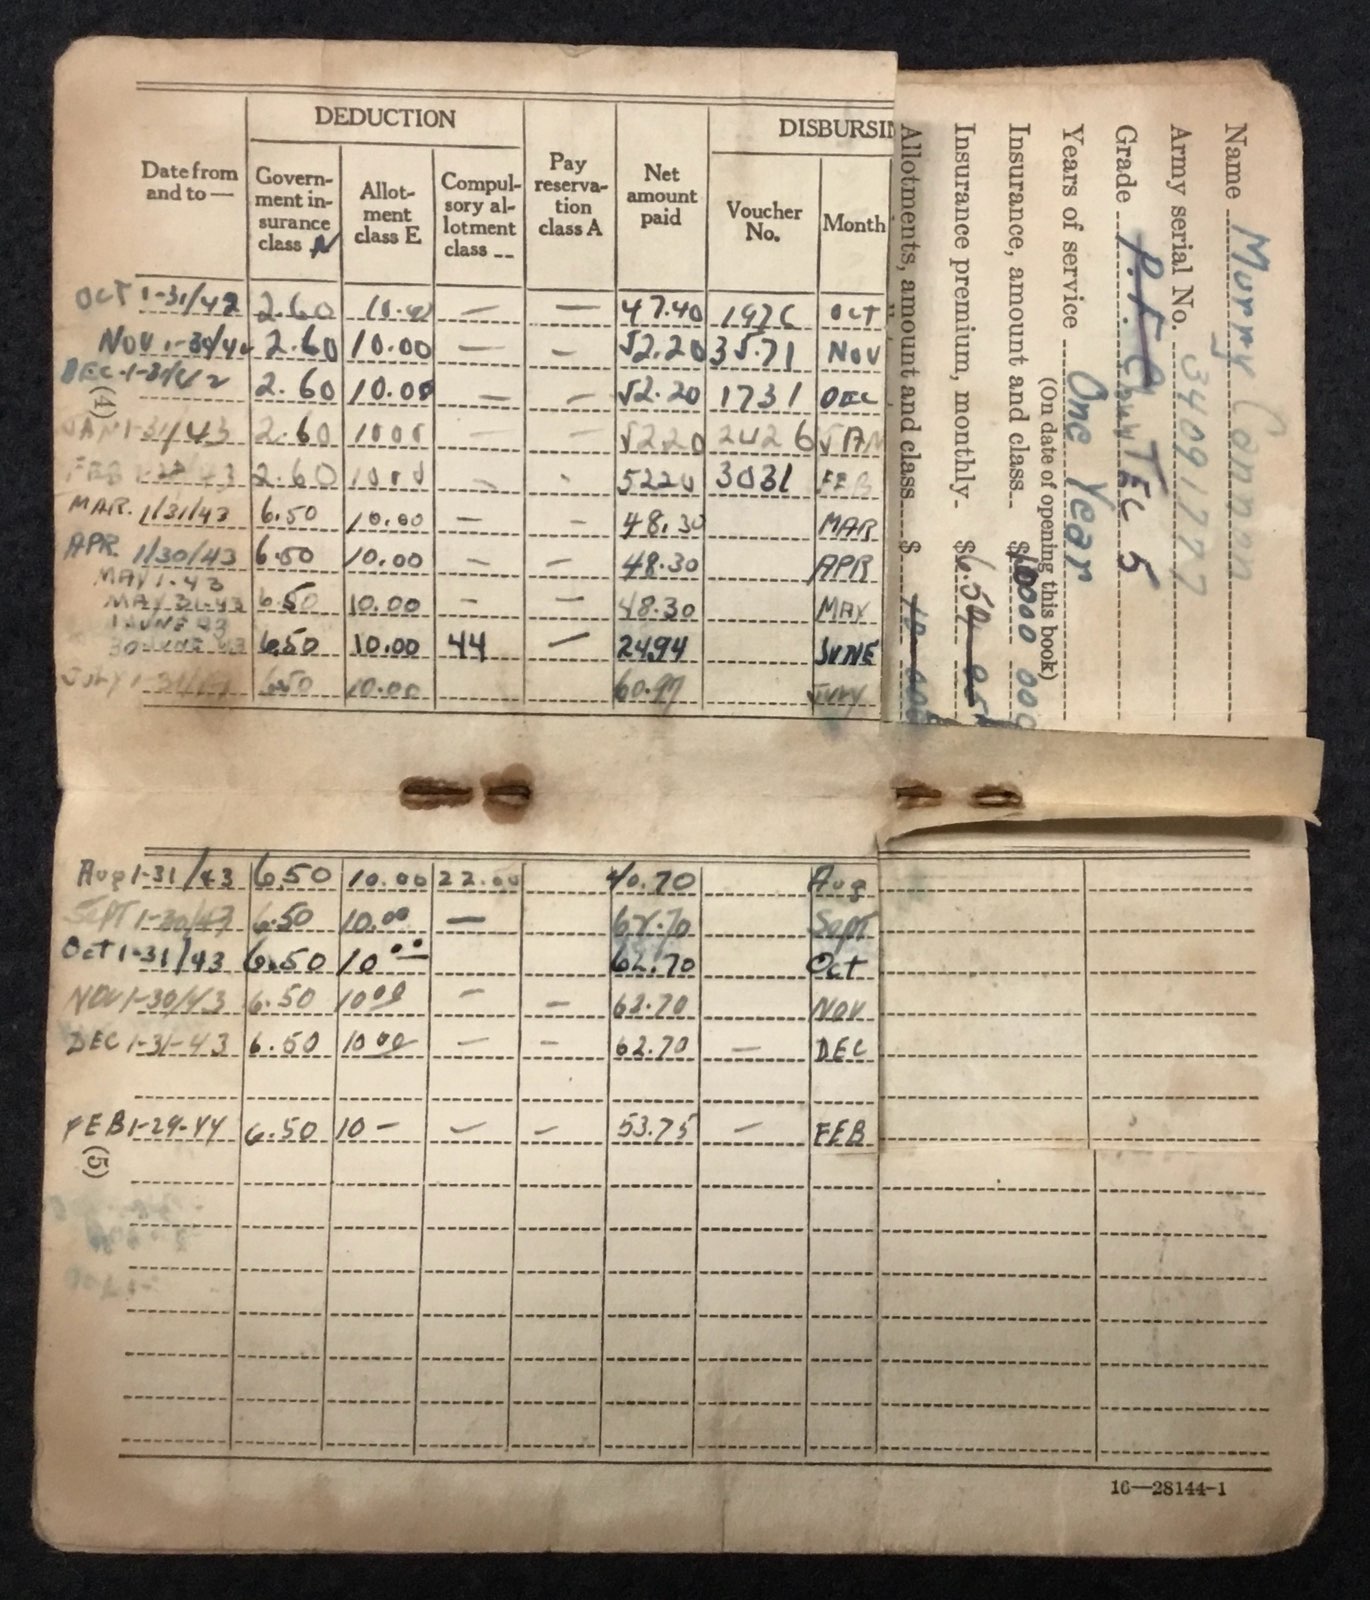 DEDUCTION
DISBURSIN
Date from and to —
Government insurance class N
Allotment class E
Compulsory allotment class --
Pay reservation class A
Net amount paid
Voucher No.
Month
OCT 1-31/42 2.60 — — 47.40 OCT
NOV 1-30/42 2.60 10.00 — — 52.20 3571 NOV
DEC 1-31/42 2.60 10.00 — — 52.20 1731 DEC
(4)
JAN 1-31/43 2.60 10.00 — — 52.20 2426 JAN
FEB 1-28/43 2.60 10.00 — - 52.20 3031 FEB
MAR. 1/31/43 6.50 10.00 — — 48.30 MAR
APR. 1/30/43 6.50 10.00 — — 48.30 APR
MAY 1-43
MAY 31-43 6.50 10.00 — — 48.30 MAY
1 JUNE 43
30 JUNE 43 6.50 10.00 44 — 24.94 JUNE
JULY 1-31/43 6.50 10.00 JULY
Name Murry Cannon
Army serial No. 34091777
Grade P.F.C. TEC 5
Years of service One Year
(On date of opening this book)
Insurance, amount and class $ 000
Insurance premium, monthly $6.50
Allotments, amount and class $ 10
Aug 1-31/43 6.50 10.00 22.00 40.70 Aug
SEPT 1-30/43 6.50 10.00 — 62.70 Sept
Oct 1-31/43 6.50 10.00 62.70 Oct
NOV 1-30/43 6.50 10 00 — — 62.70 NOV
DEC 1-31-43 6.50 10 00 — — 62.70 — DEC
FEB 1-29-44 6.50 10 — — — 53.75 — FEB
(5)
16—28144-1